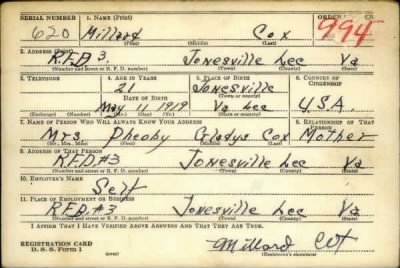 SERIAL NUMBER 1. NAME (Print) ORDER
620 Millard Cox 994
(First) (Middle) (Last)
2. ADDRESS (Print)
R.F.D 3. Jonesville Lee Va
(Number and street or R. F. D. number) (Town) (County) (State)
3. TELEPHONE 4. AGE IN YEARS 5. PLACE OF BIRTH 6. COUNTRY OF CITIZENSHIP
21 Jonesville
DATE OF BIRTH (Town or county)
May 11 1919 Va Lee U.S.A.
(Exchange) (Number) (Mo.) (Day) (Yr.) (State or country)
7. NAME OF PERSON WHO WILL ALWAYS KNOW YOUR ADDRESS 8. RELATIONSHIP OF THAT PERSON
Mrs. Pheoby Gladys Cox Mother
(Mr., Mrs., Miss) (First) (Middle) (Last)
9. ADDRESS OF THAT PERSON
R.F.D.#3 Jonesville Lee Va
(Number and street or R. F. D. number) (Town) (County) (State)
10. EMPLOYER'S NAME
Self
11. PLACE OF EMPLOYMENT OR BUSINESS
R.F.D.#3 Jonesville Lee Va
(Number and street or R. F. D. number) (Town) (County) (State)
I AFFIRM THAT I HAVE VERIFIED ABOVE ANSWERS AND THAT THEY ARE TRUE.
REGISTRATION CARD
D. S. S. Form 1 Millard Cox
(Registrant's signature)